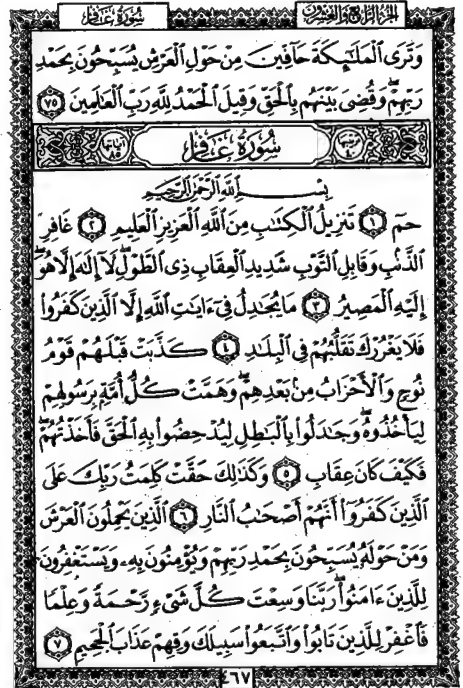 سُورَةُ غَافِر
الجزء الرابع والعشرون
وَتَرَى ٱلْمَلَٰٓئِكَةَ حَآفِّينَ مِنْ حَوْلِ ٱلْعَرْشِ يُسَبِّحُونَ بِحَمْدِ
رَبِّهِمْ ۖ وَقُضِىَ بَيْنَهُم بِٱلْحَقِّ وَقِيلَ ٱلْحَمْدُ لِلَّهِ رَبِّ ٱلْعَٰلَمِينَ ٧٥
آياتها ٨٥ سُورَةُ غَافِر ترتيبها ٤٠
بِسْمِ ٱللَّهِ ٱلرَّحْمَٰنِ ٱلرَّحِيمِ
حمٓ ١ تَنزِيلُ ٱلْكِتَٰبِ مِنَ ٱللَّهِ ٱلْعَزِيزِ ٱلْعَلِيمِ ٢ غَافِرِ
ٱلذَّنۢبِ وَقَابِلِ ٱلتَّوْبِ شَدِيدِ ٱلْعِقَابِ ذِى ٱلطَّوْلِ ۖ لَآ إِلَٰهَ إِلَّا هُوَ ۖ
إِلَيْهِ ٱلْمَصِيرُ ٣ مَا يُجَٰدِلُ فِىٓ ءَايَٰتِ ٱللَّهِ إِلَّا ٱلَّذِينَ كَفَرُوا۟
فَلَا يَغْرُرْكَ تَقَلُّبُهُمْ فِى ٱلْبِلَٰدِ ٤ كَذَّبَتْ قَبْلَهُمْ قَوْمُ
نُوحٍ وَٱلْأَحْزَابُ مِنۢ بَعْدِهِمْ ۖ وَهَمَّتْ كُلُّ أُمَّةٍۭ بِرَسُولِهِمْ
لِيَأْخُذُوهُ ۖ وَجَٰدَلُوا۟ بِٱلْبَٰطِلِ لِيُدْحِضُوا۟ بِهِ ٱلْحَقَّ فَأَخَذْتُهُمْ ۖ
فَكَيْفَ كَانَ عِقَابِ ٥ وَكَذَٰلِكَ حَقَّتْ كَلِمَتُ رَبِّكَ عَلَى
ٱلَّذِينَ كَفَرُوٓا۟ أَنَّهُمْ أَصْحَٰبُ ٱلنَّارِ ٦ ٱلَّذِينَ يَحْمِلُونَ ٱلْعَرْشَ
وَمَنْ حَوْلَهُۥ يُسَبِّحُونَ بِحَمْدِ رَبِّهِمْ وَيُؤْمِنُونَ بِهِۦ وَيَسْتَغْفِرُونَ
لِلَّذِينَ ءَامَنُوا۟ رَبَّنَا وَسِعْتَ كُلَّ شَىْءٍ رَّحْمَةً وَعِلْمًا
فَٱغْفِرْ لِلَّذِينَ تَابُوا۟ وَٱتَّبَعُوا۟ سَبِيلَكَ وَقِهِمْ عَذَابَ ٱلْجَحِيمِ ٧
٤٦٧